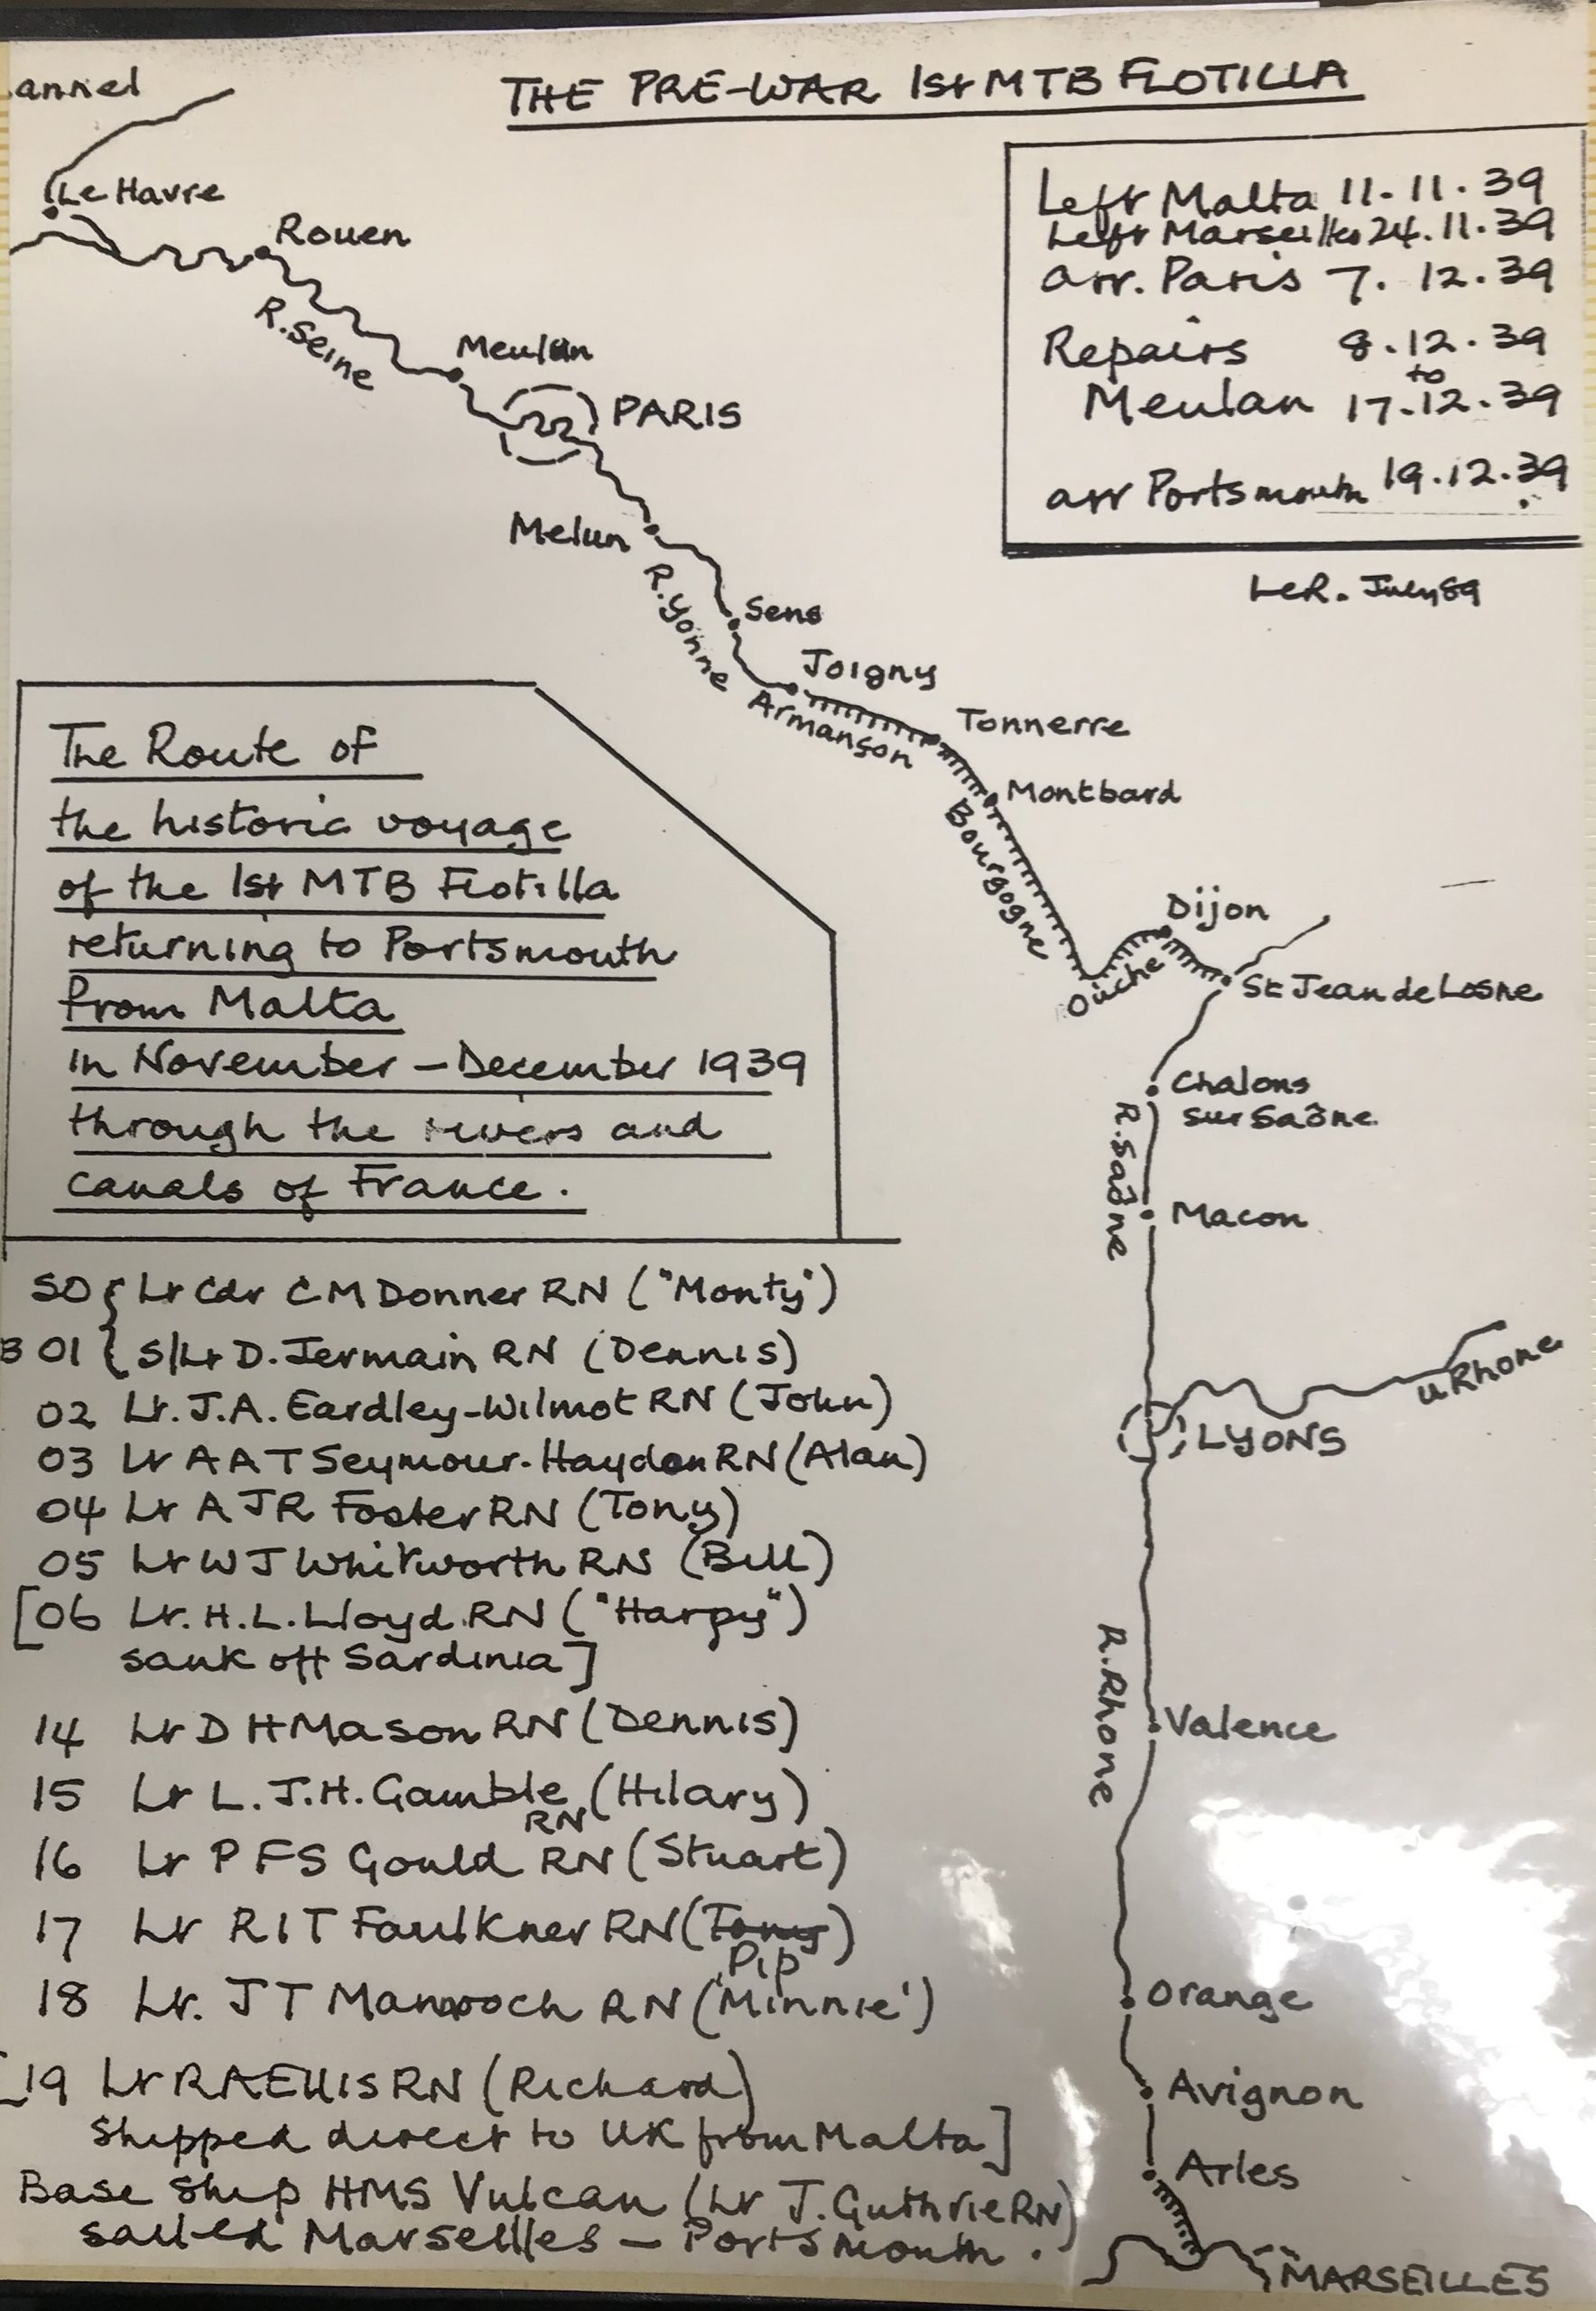 THE PRE-WAR 1st MTB FLOTILLA
annel
Le Havre
Rouen
R. Seine
Meulan
PARIS
Melun
R. Yonne
Sens
Joigny
Armanson
Tonnerre
Montbard
Bourgogne
Ouche
Dijon
St Jean de Losne
Chalons
sur Saône
R. Saône
Macon
u Rhone
LYONS
R. Rhone
Valence
Orange
Avignon
Arles
MARSEILLES
Left Malta 11.11.39
Left Marseilles 24.11.39
arr. Paris 7.12.39
Repairs 8.12.39
to
Meulan 17.12.39
arr Portsmouth 19.12.39
LeR. July 89
The Route of
the historic voyage
of the 1st MTB Flotilla
returning to Portsmouth
from Malta
in November - December 1939
through the rivers and
canals of France.
SO { Lt Cdr C M Donner RN ("Monty")
B 01 { S/Lt D. Jermain RN (Dennis)
02 Lt. J.A. Eardley-Wilmot RN (John)
03 Lt A A T Seymour-Haydon RN (Alan)
04 Lt A J R Foster RN (Tony)
05 Lt W J Whitworth RN (Bill)
[06 Lt. H.L. Lloyd RN ("Harpy")
sank off Sardinia]
14 Lt D H Mason RN (Dennis)
15 Lt L.J.H. Gamble RN (Hilary)
16 Lt P F S Gould RN (Stuart)
17 Lt R I T Faulkner RN (Tony)
Pip
18 Lt. J T Mannooch RN ('Minnie')
[19 Lt R A Ellis RN (Richard)
Shipped direct to UK from Malta]
Base Ship HMS Vulcan (Lt J. Guthrie RN)
sailed Marseilles - Portsmouth.